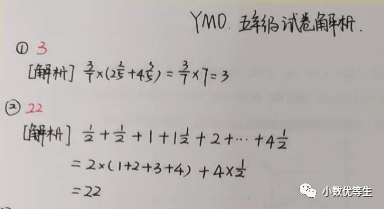 YMO. 五年级试卷解析.
① 3
[解析] 3/7×(2 2/5+4 3/5)=3/7×7=3
② 22
[解析] 1/2+1/2+1+1 1/2+2+⋯+4 1/2
=2×(1+2+3+4)+4×1/2
=22
小数优等生